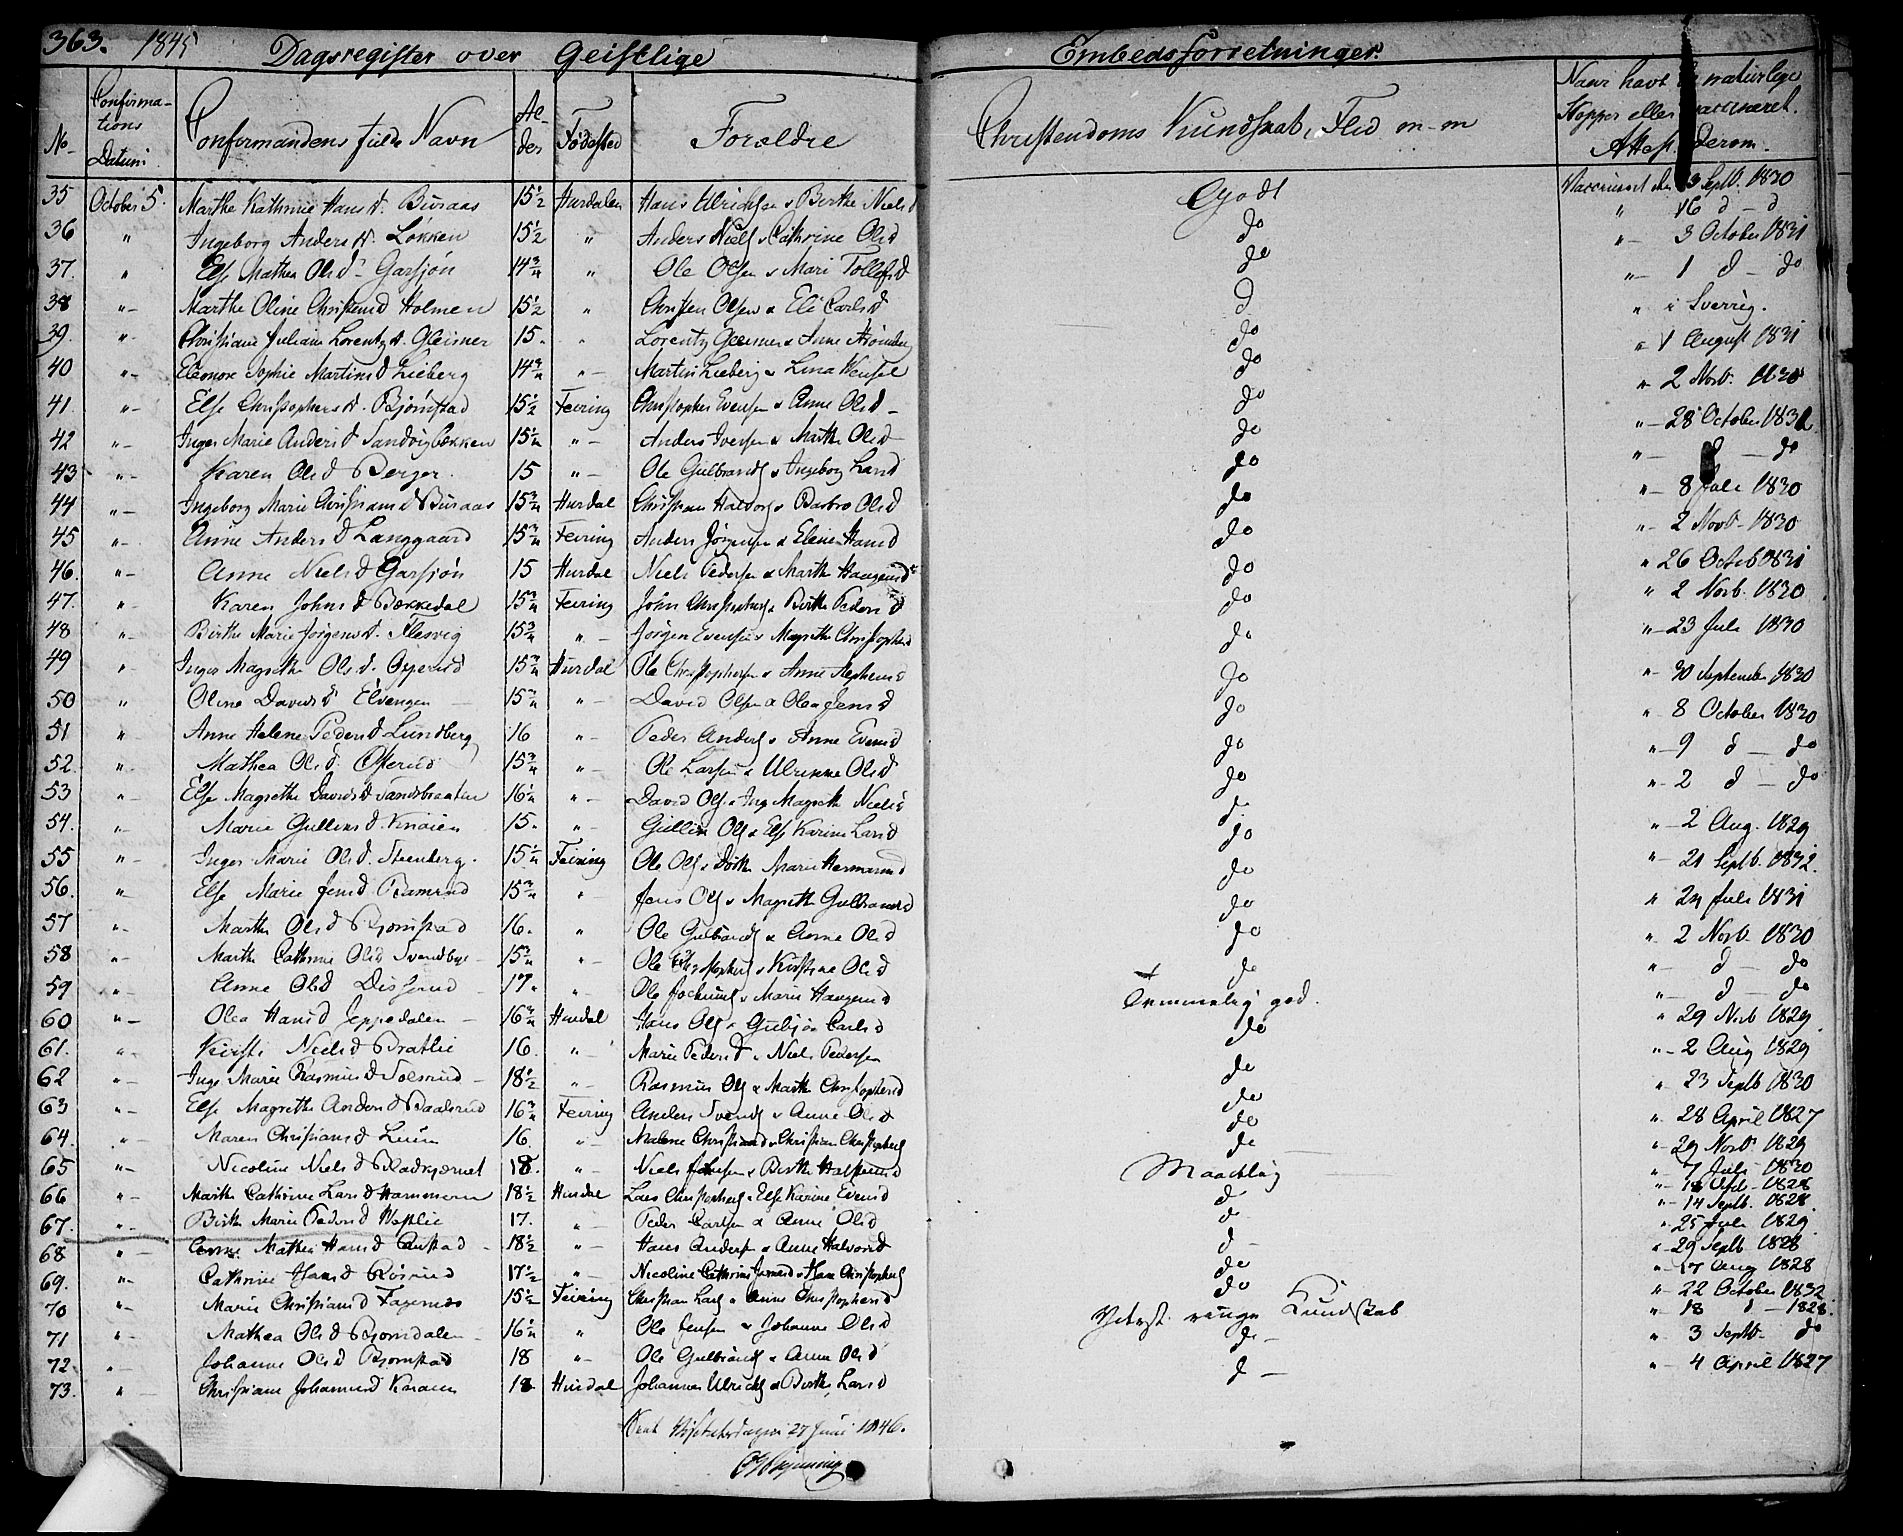 363. 1845 Dagsregister over Geistlige Embedsforretninger.
No. Confirmations Datum. Confirmandens fulde Navn Alder Fødested Forældre Christendoms Kundskab, Flid m-m Naar havt de naturlige Kopper eller vaccineret. Attest derom.
35 October 5. Marthe Kathrine Hansd. Buraas 15½ Hurdalen Hans Ulrichsen & Berthe Nielsd Godt Vaccineret den 3 Septb. 1830
36 " Ingeborg Andersd. Løkken 15½ " Anders Niels & Cathrine Olsd do " 16 d - d
37. " Else Mathea Olsd Garsjøn 14¾ " Ole Olsen & Mari Tollefsd do " 3 October 1831
38 " Marthe Oline Christensd Holmen 15½ " Christen Olsen & Eli Carlsd d " 1 d - do
39. " Christiane Juliane Lorentzd. Gleimer 15. " Lorentz Gleimer & Anne do " i Sverrig.
40 " Eleonore Sophie Martinsd Lieberg 14¾ " Martin Lieberg & Lina Wensel do " 1 August 1831
41. " Else Christophersd. Bjørnstad 15½ Feiring Christopher Evensen & Anne Olsd - do " 2 Novb. 1830
42 " Inger Marie Andersd Sandvigbækken 15¼ " Anders Iversen & Marthe Olsd do " 28 October 1831
43 " Karen Olsd Berger. 15 " Ole Gulbrands & Ingeborg Larsd do " d - do
44 " Ingeborg Marie Christiansd Buraas 15¾ Hurdal Christian Halvors & Barbro Olsd do " 8 Juli 1830
45 " Anne Andersd Langgaard 15¾ Feiring Anders Jørgensen & Elene Hansd do " 2 Novb 1830
46. " Anne Nielsd Garsjøn 15 Hurdal Niels Pedersen & Marthe Haagensd do " 26 Octob 1831
47. " Karen Johnsd Bækkedal 15¾ Feiring John Christophers & Berthe Pedersd do " 2 Novb. 1830
48 " Birthe Marie Jørgensd. Flesvig 15¾ " Jørgen Evensen & Magrethe Christophersd d " 23 Juli 1830
49 " Inger Magrethe Olsd. 15¾ Hurdal Ole Christophersen & Anne Stephensd do " 30 September 1830
50 " Oline Davidsd Elvengen 15¾ " David Olsen & Olea Jensd do " 8 October 1830
51 " Anne Helene Pedersd Lundberg 16 " Peder Anders & Anne Evensd do " 9 d - do
52. " Mathea Olsd. 15¾ " Ole Larsen & Ulrikke Olsd do " 2 d - do
53 " Else Magrethe Davidsd Sandsbraaten 16¼ " David Ols & Ing Magreth Nielsd d. " 2 Aug. 1829
54. " Marie Gullensd. Knaien 15. " Gullen Ols & Else Karine Larsd do
55 " Inger Marie Olsd. Steenberg. 15¼ Feiring Ole Ols & Dorthe Marie Hermansd do " 21 Septb. 1832.
56. " Else Marie Jensd Ramsrud 15¾ " Jens Ols & Magrethe Gulbrandsd do " 24 Juli 1831
57 " Marthe Olsd Bjørnstad 16. " Ole Gulbrands & Anne Olsd do " 2 Novb. 1830
58 " Marthe Cathrine Olsd Svendbye 15¾ " Ole Christophers & Kirstine Olsd do " d - do
59 " Anne Olsd 17. " Ole & Marie Haagensd Temmelig god. " d - do
60 " Olea Hansd Jeppedalen 16¾ Hurdal Hans Ols & Gubjør Carlsd do " 29 Novb 1829
61. " Kirsti Nielsd Bratlie 16. " Marie Pedersd & Niels Pedersen do " 2 Aug 1829
62 " Inge Marie Rasmusd Tolsrud 18½ " Rasmus Ols & Marthe Christophersd do " 23 Septb 1830
63 " Else Magrethe Andersd Baalsrud 16¾ Feiring Anders Svends & Anne Olsd do " 28 April 1827
64. " Maren Christiansd Luun 16. " Malene Christiansd & Christian Christophers do " 29 Novb. 1829
65 " Nicoline Nielsd Bladkjærnet 18. " Niels Johnsen & Berthe Maadelig " 7 Juli 1830
66 " Marthe Cathrine Larsd Hammeren 18½ Hurdal Lars Christophers & Else Karine Evensd d " 14 Septb. 1828.
67. " Birthe Marie Pedersd 17. " Peder Carlsen & Anne Olsd d " 25 Juli 1829
68 " Mathea Hansd 18½ " Hans Anders & Anne Halvorsd d - " 29 Septb 1828
69. " Cathrine Hansd Røisrud 17½ " Nicoline Cathrine & Hans Christophers do " 17 Aug 1828
70 " Marie Christiansd Fagernæs 15½ Feiring Christian Lars & Anne Christophersd do " 22 October 1832
71 " Mathea Olsd Bjørndalen 16¼ " Ole Jensen & Johanne Olsd Yderst ringe Kundskab " 18 d - 1828.
72. " Johanne Olsd Bjørnstad 18 " Ole Gulbrands & Anne Olsd d - " 3 Septb - do
73. " Christiane Johannesd Knaien 18 Hurdal Johannes Ulrichs & Berthe Larsd d - " 4 April 1827
27 Juni 1846.